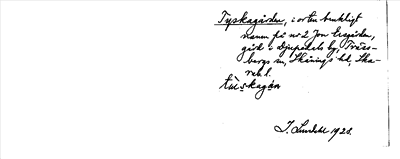 Tyskagården, i orten brukligt
namn på nr 2 Jon Ersgården,
gård i Djupedals by, Bräns-
bergs sn, Skånings hd, Ska-
rab. l.
tùskagán
J. Lindahl 1928.